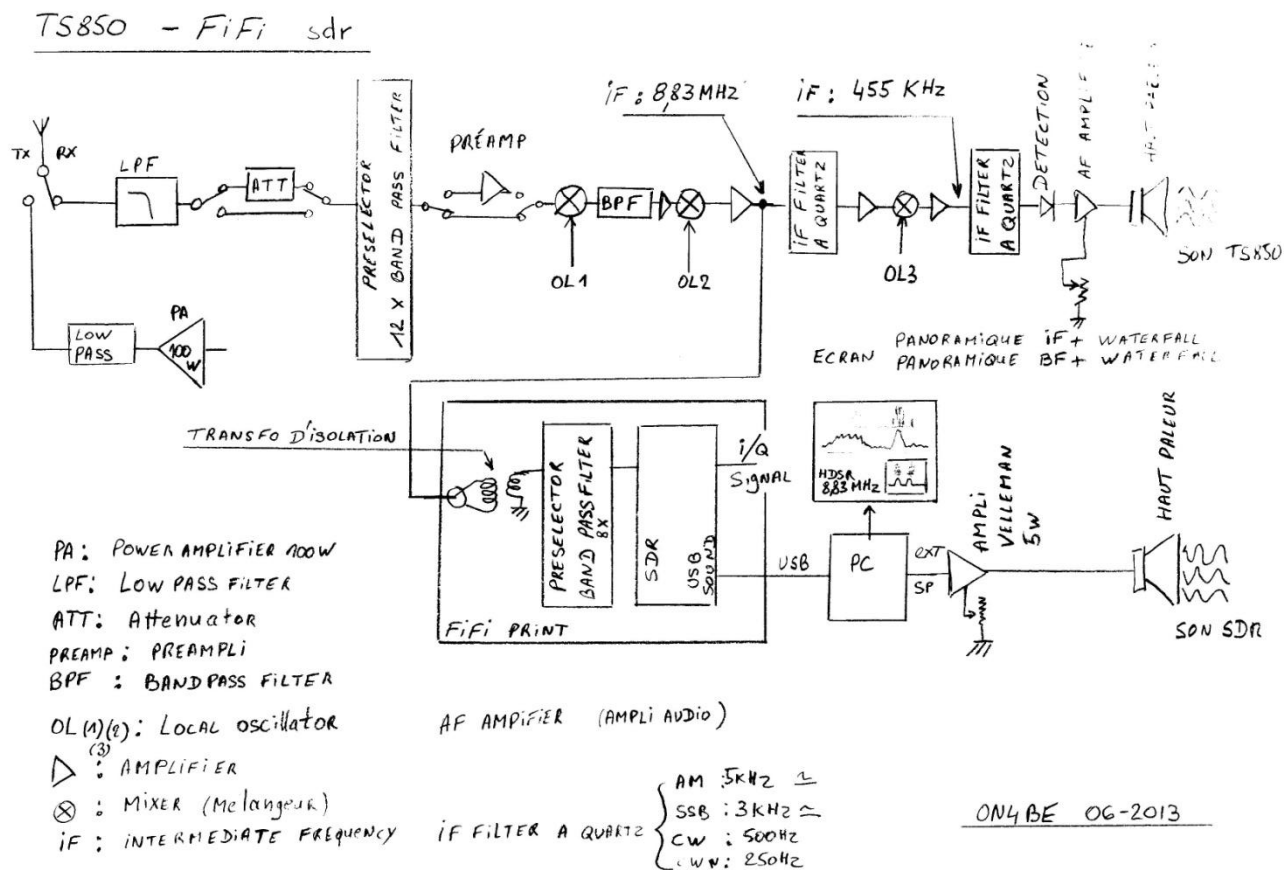 TS850 - FiFi sdr
TX
RX
LPF
ATT
PRESELECTOR
12 X BAND PASS FILTER
PRÉAMP
OL1
BPF
OL2
iF : 8,83 MHz
iF FILTER
A QUARTZ
OL3
iF : 455 KHz
iF FILTER
A QUARTZ
DETECTION
AF AMPLIFIE
HAUT
SON TS850
PA
100
W
LOW
PASS
ECRAN
PANORAMIQUE iF + WATERFALL
PANORAMIQUE BF + WATERFALL
TRANSFO D'ISOLATION
PRESELECTOR
BAND PASS FILTER
8X
SDR
USB
SOUND
i/Q
SigNAL
FiFi PRINT
USB
HDSR
8,83 MHz
PC
eXT
SP
AMPLI
VELLEMAN
5W
HAUT PALEUR
SON SDR
PA : POWER AMPLIFIER 100W
LPF: LOW PASS FILTER
ATT: Attenuator
PREAMP : PREAMPLI
BPF : BANDPASS FILTER
OL (1)(2) : LOCAL oscillator
(3)
: AMPLIFIER
: MIXER (Melangeur)
iF : INTERMEDIATE FREQUENCY
AF AMPIFIER (AMPLI AUDIO)
iF FILTER A QUARTZ
AM : 5KHZ ≃
SSB : 3KHZ ≃
CW : 500HZ
CWN : 250HZ
ON4BE 06-2013